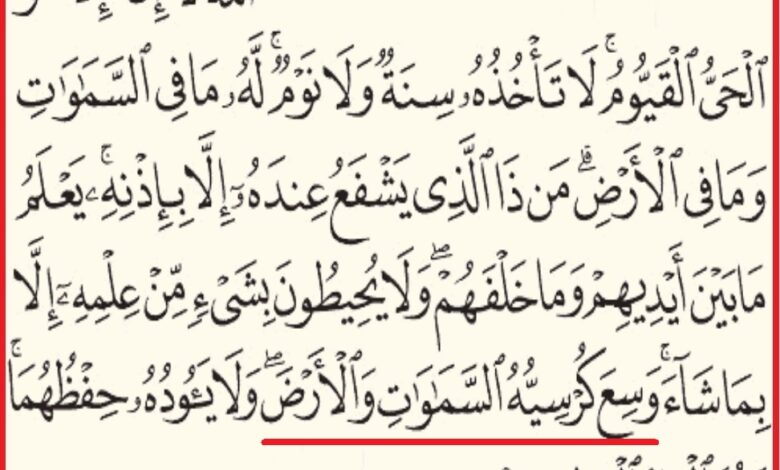 ٱلْحَيُّ ٱلْقَيُّومُۚ لَا تَأْخُذُهُۥ سِنَةٌ وَلَا نَوْمٌۚ لَّهُۥ مَا فِي ٱلسَّمَٰوَٰتِ
وَمَا فِي ٱلْأَرْضِۗ مَن ذَا ٱلَّذِي يَشْفَعُ عِندَهُۥٓ إِلَّا بِإِذْنِهِۦۚ يَعْلَمُ
مَا بَيْنَ أَيْدِيهِمْ وَمَا خَلْفَهُمْۖ وَلَا يُحِيطُونَ بِشَيْءٍ مِّنْ عِلْمِهِۦٓ إِلَّا
بِمَا شَآءَۚ وَسِعَ كُرْسِيُّهُ ٱلسَّمَٰوَٰتِ وَٱلْأَرْضَۖ وَلَا يَـُٔودُهُۥ حِفْظُهُمَاۚ